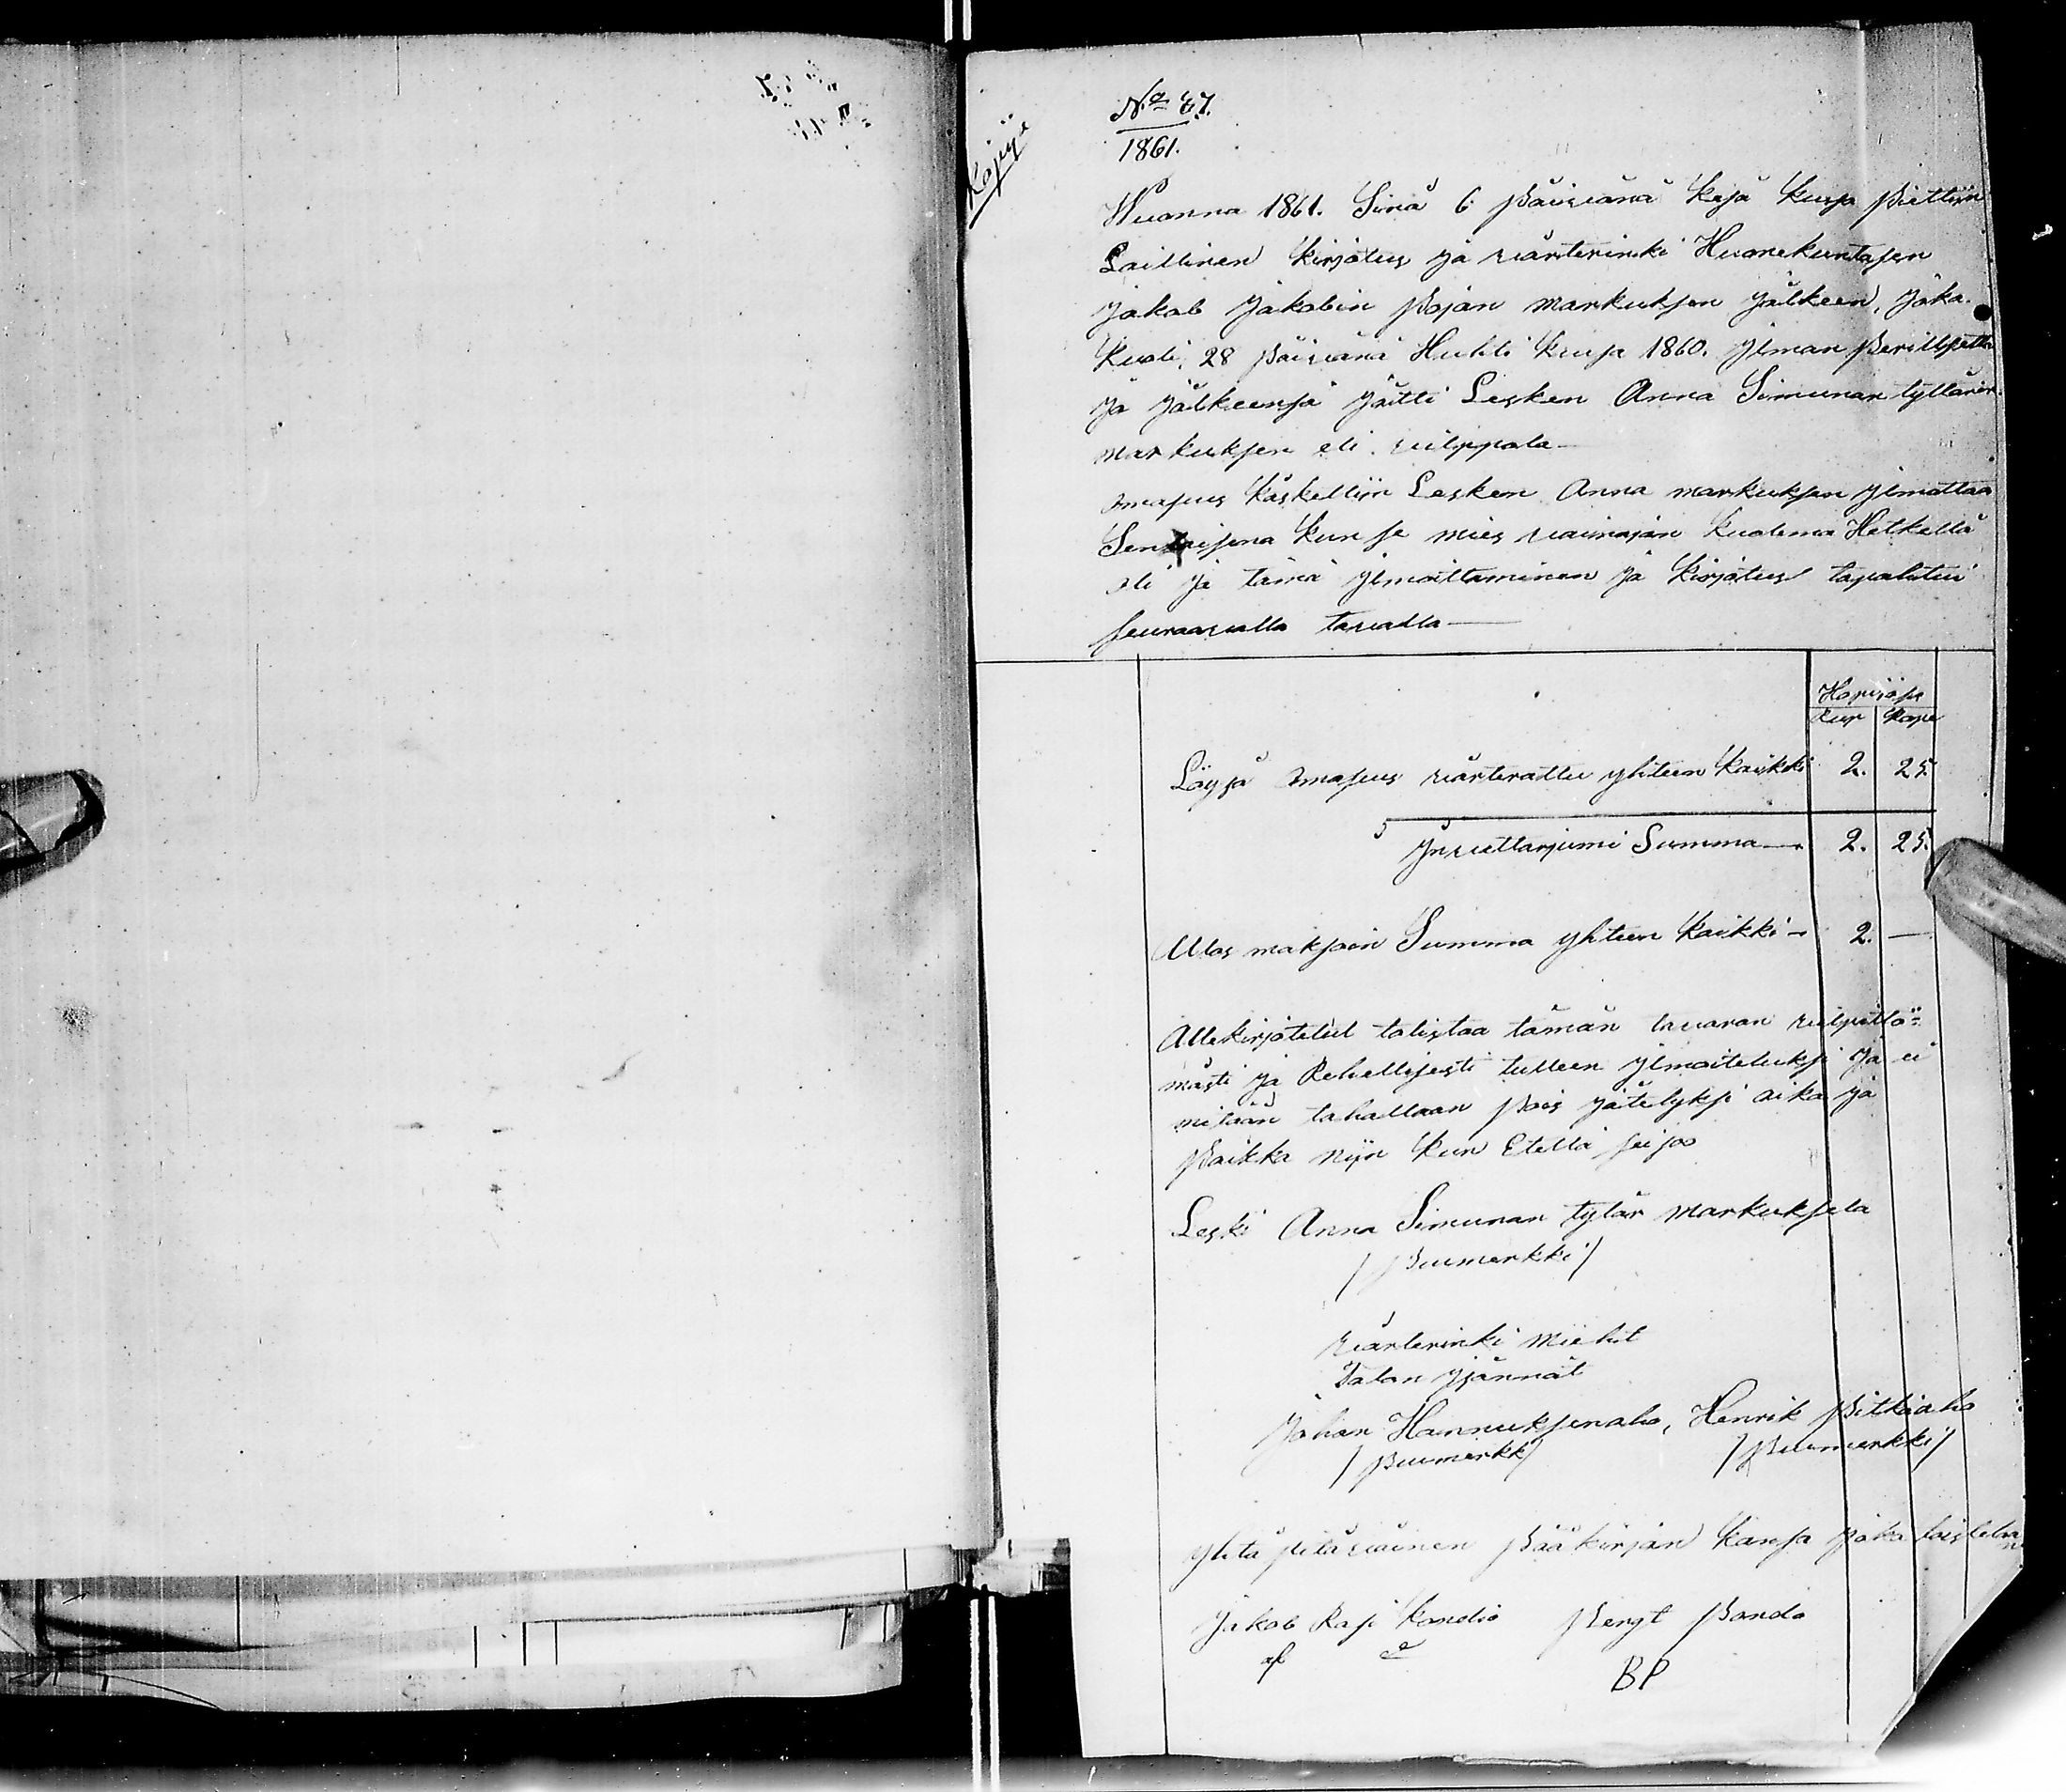 Kopija
No 67.
1861.
Wuonna 1861. Sinä 6 päivänä kesä kuusa pidettiin
Laillinen kirjotus ja värterinki Huonekuntasen
Jakob Jakobin pojan Markuksen jälkeen, joka
kuoli, 28 päivänä Huhti kuusa 1860. Ilman Perillisettä
ja jälkeensä jätti Lesken Anna Simunan tyttären
Markuksen eli vilppola
omasus käskettiin Lesken Anna Markuksen ilmottaa
kun se mies vainajan kuolema Hetkellä
oli ja tämä ilmoittaminen ja kirjotus tapahtui
seuraavalla tavalla
Hopiosa
Rup Kope
Löysä omasus värterattu yhteen kaikki 2. 25.
Invettarjumi Summa 2. 25.
Ulos maksoin Summa yhteen kaikki 2. —
Allekirjotetut tolistaa tämän tavaran vilpittö=
mästi ja Rehellisesti tulleen ilmoiteluksi ja ei
mitään tahallaan pois jätetyksi aika ja
Paikka niin kun Etellä seisoo
Leski Anna Simunan tytär Markuksela
/ Puumerkki /
värterinki miehet
Talon isännät
Johan Hannuksenaho, Henrik Pitkäaho
/ Puumerkk / / Puumerkki /
yhtä pitäväinen pääkirjan kansa joka toistetaan
Jakob Rasi Kandio Bengt Panda
BP